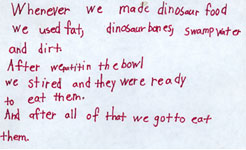 Whenever we made dinosaur food
we used fat, dinosaur bones, swamp water
and dirt.
After we put it in the bowl
we stired and they were ready
to eat them.
And after all of that we got to eat
them.